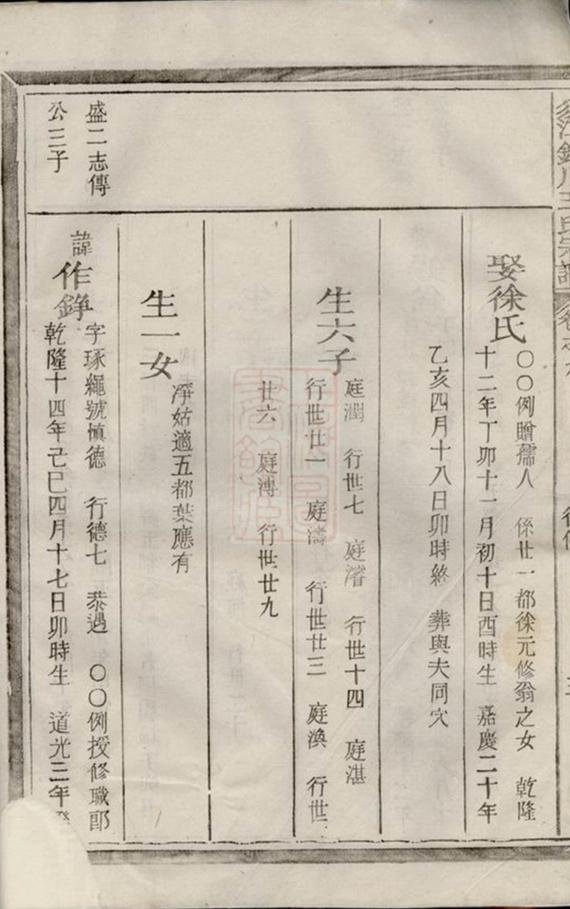 娶徐氏
〇〇例贈孺人 係廿一都徐元修翁之女 乾隆
十二年丁卯十一月初十日酉時生 嘉慶二十年
乙亥四月十八日卯時終 葬與夫同穴
生六子
庭潤 行世七 庭濬 行世十四 庭湛
行世廿一 庭濤 行世廿三 庭渙 行世
廿六 庭溥 行世廿九
生一女
淨姑適五都葉應有
盛二志傳
公三子
諱作錚
字琢繩號慎德 行德七 恭遇 〇〇例授修職郎
乾隆十四年己巳四月十七日卯時生 道光三年